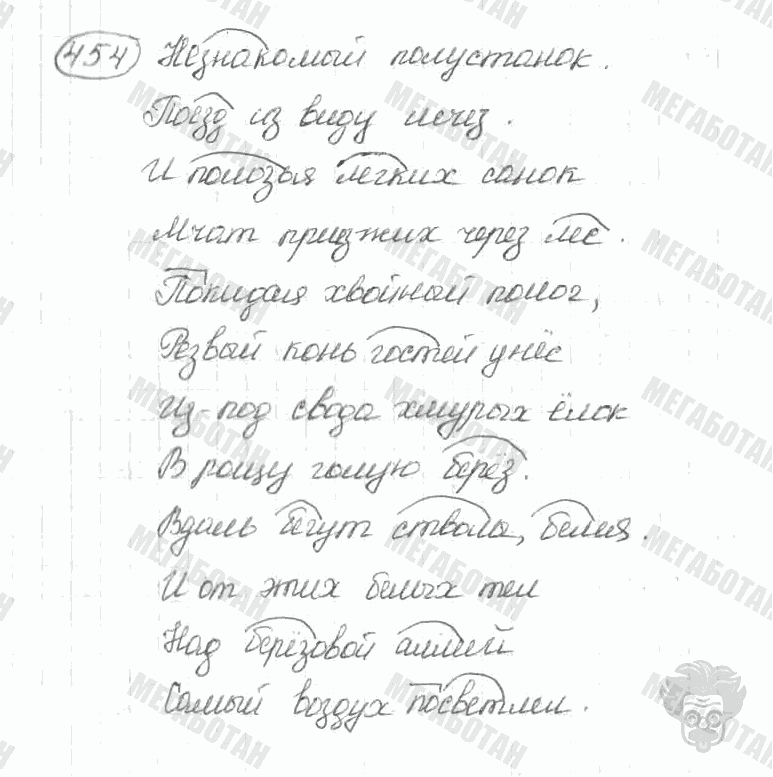 454 Незнакомый полустанок.
Поезд из виду исчез.
И полозья легких санок
Мчат приезжих через лес.
Покидая хвойный полог,
Резвый конь гостей унёс
Из-под свода хмурых ёлок
В рощу голую берёз.
Вдаль бегут стволы, белея.
И от этих белых тел
Над берёзовой аллеей
Самый воздух посветлел.
МЕГАБОТАН